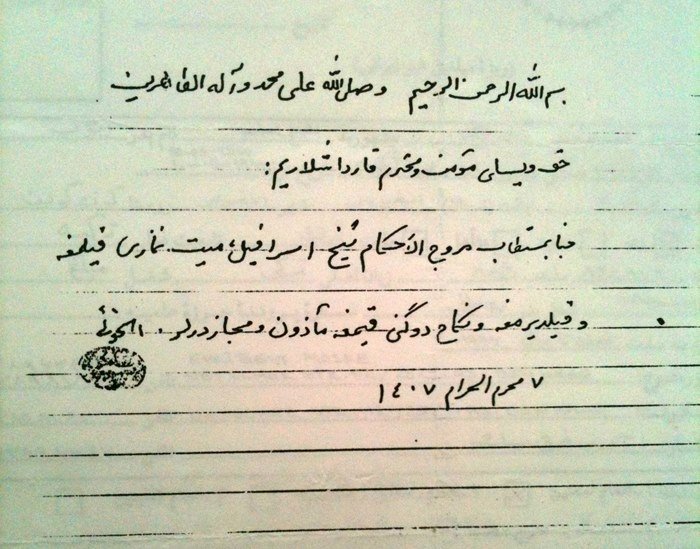 بسم الله الرحمن الرحیم وصلی الله علی محمد وآله الطاهرین
حق ویسای مؤمن ومحترم قارداشلاریم:
جنابمستطاب مروج الاحکام شیخ اسرافیل، میت نمازی قیلمغه
وقیلدیرمغه ونکاح دوگنی قیمغه مأذون ومجازدرلر. الخوئی
۷ محرم الحرام ۱۴۰۷